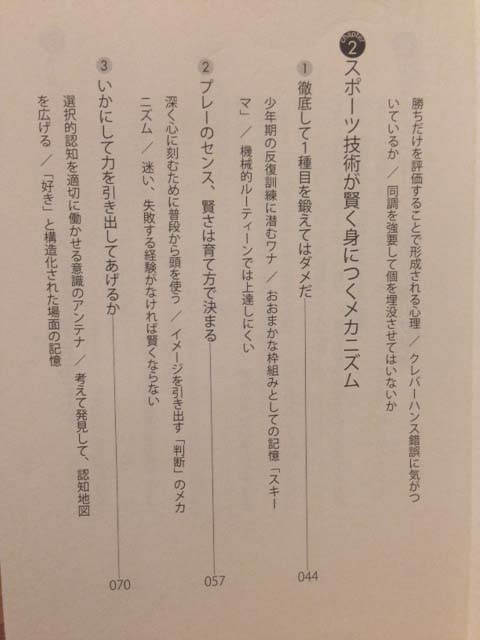 勝ちだけを評価することで形成される心理 / クレバーハンス錯誤に気がつ
いているか / 同調を強要して個を埋没させてはいないか
chapter 2 スポーツ技術が賢く身につくメカニズム
1 徹底して1種目を鍛えてはダメだ 044
少年期の反復訓練に潜むワナ / おおまかな枠組みとしての記憶「スキー
マ」 / 機械的ルーティーンでは上達しにくい
2 プレーのセンス、賢さは育て方で決まる 057
深く心に刻むために普段から頭を使う / イメージを引き出す「判断」のメカ
ニズム / 迷い、失敗する経験がなければ賢くならない
3 いかにして力を引き出してあげるか 070
選択的認知を適切に働かせる意識のアンテナ / 考えて発見して、認知地図
を広げる / 「好き」と構造化された場面の記憶